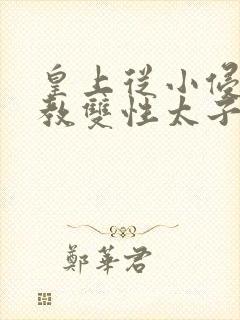 皇上從小侵
教雙性太子
鄭華君